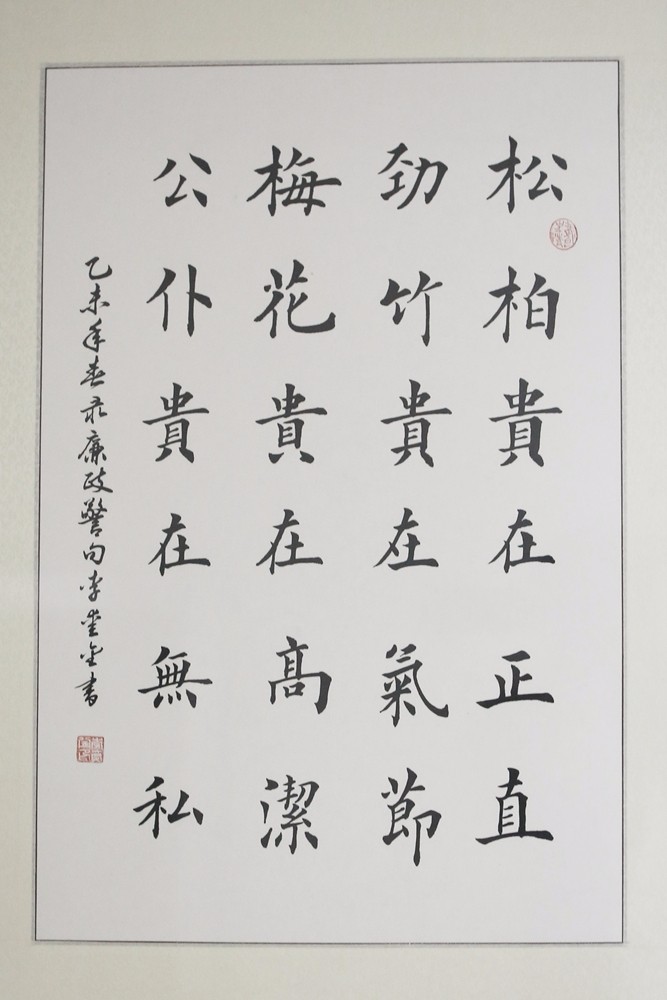 松柏貴在正直
勁竹貴在氣節
梅花貴在髙潔
公仆貴在無私
乙未年春录廉政警句李金书